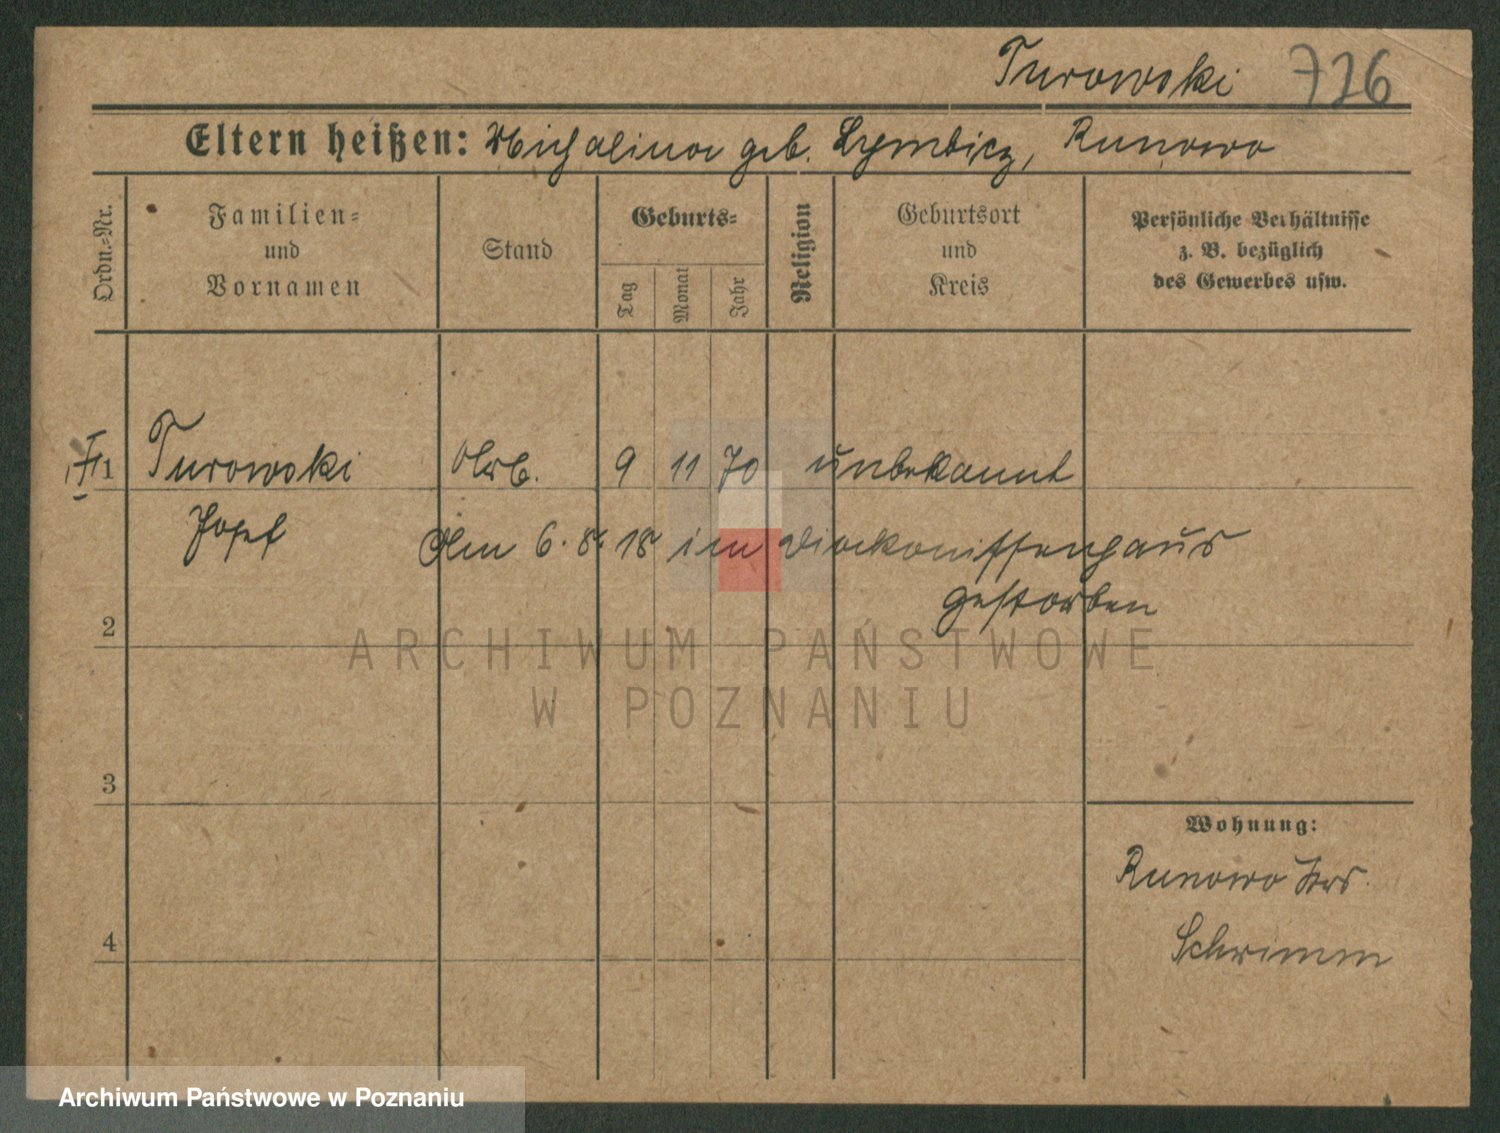 Turowski 726
Eltern heißen: Michalina geb. Szymbicz, Runowo
Ordn.=Nr.
Familien= und Vornamen
Stand
Geburts=
Tag
Monat
Jahr
Religion
Geburtsort und Kreis
Persönliche Verhältnisse
z. B. bezüglich
des Gewerbes usw.
1 Turowski Arb. 9 11 70 unbekannt
Josef Am 6. 8. 18 im Diakonissenhaus
gestorben
2
ARCHIWUM PAŃSTWOWE
W POZNANIU
3
Wohnung:
Runowo Krs
4
Schrimm
Archiwum Państwowe w Poznaniu